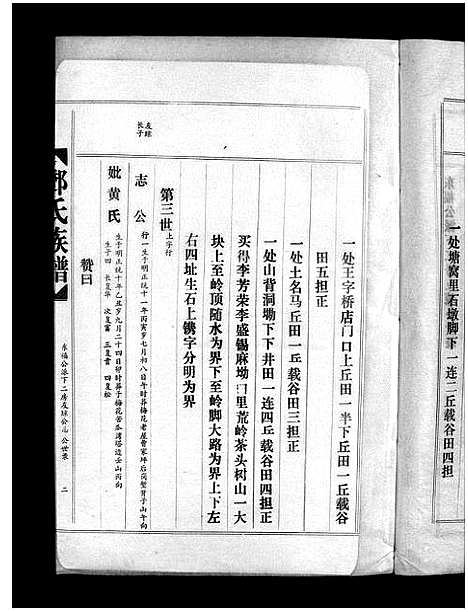 一处塘窝里石墩脚下一连二丘载谷田四担
一处王字桥店门口上丘田一半下丘田一丘载谷
田五担正
一处土名马丘田一丘载谷田三担正
一处山背洞坳下下井田一连四丘载谷田四担正
买得李芳荣李盛锡麻坳口里荒岭茶头树山一大
块上至岭顶随水为界下至岭脚大路为界上下左
右四址生石上镌字分明为界
第三世 上字行
友球
长子
志公 行一生于明正统十一年丙寅岁七月初八日午时葬梅花老屋曹家坪后岗堑背子山午向
妣黄氏 生于明正统十年乙丑岁九月二十四日卯时葬于梅花苦瓜湾塔边壬山丙向
生子四 长复华 次复富 三复贵 四复松
赞曰
氏族谱
东福公派下二房友球公 公世系
二